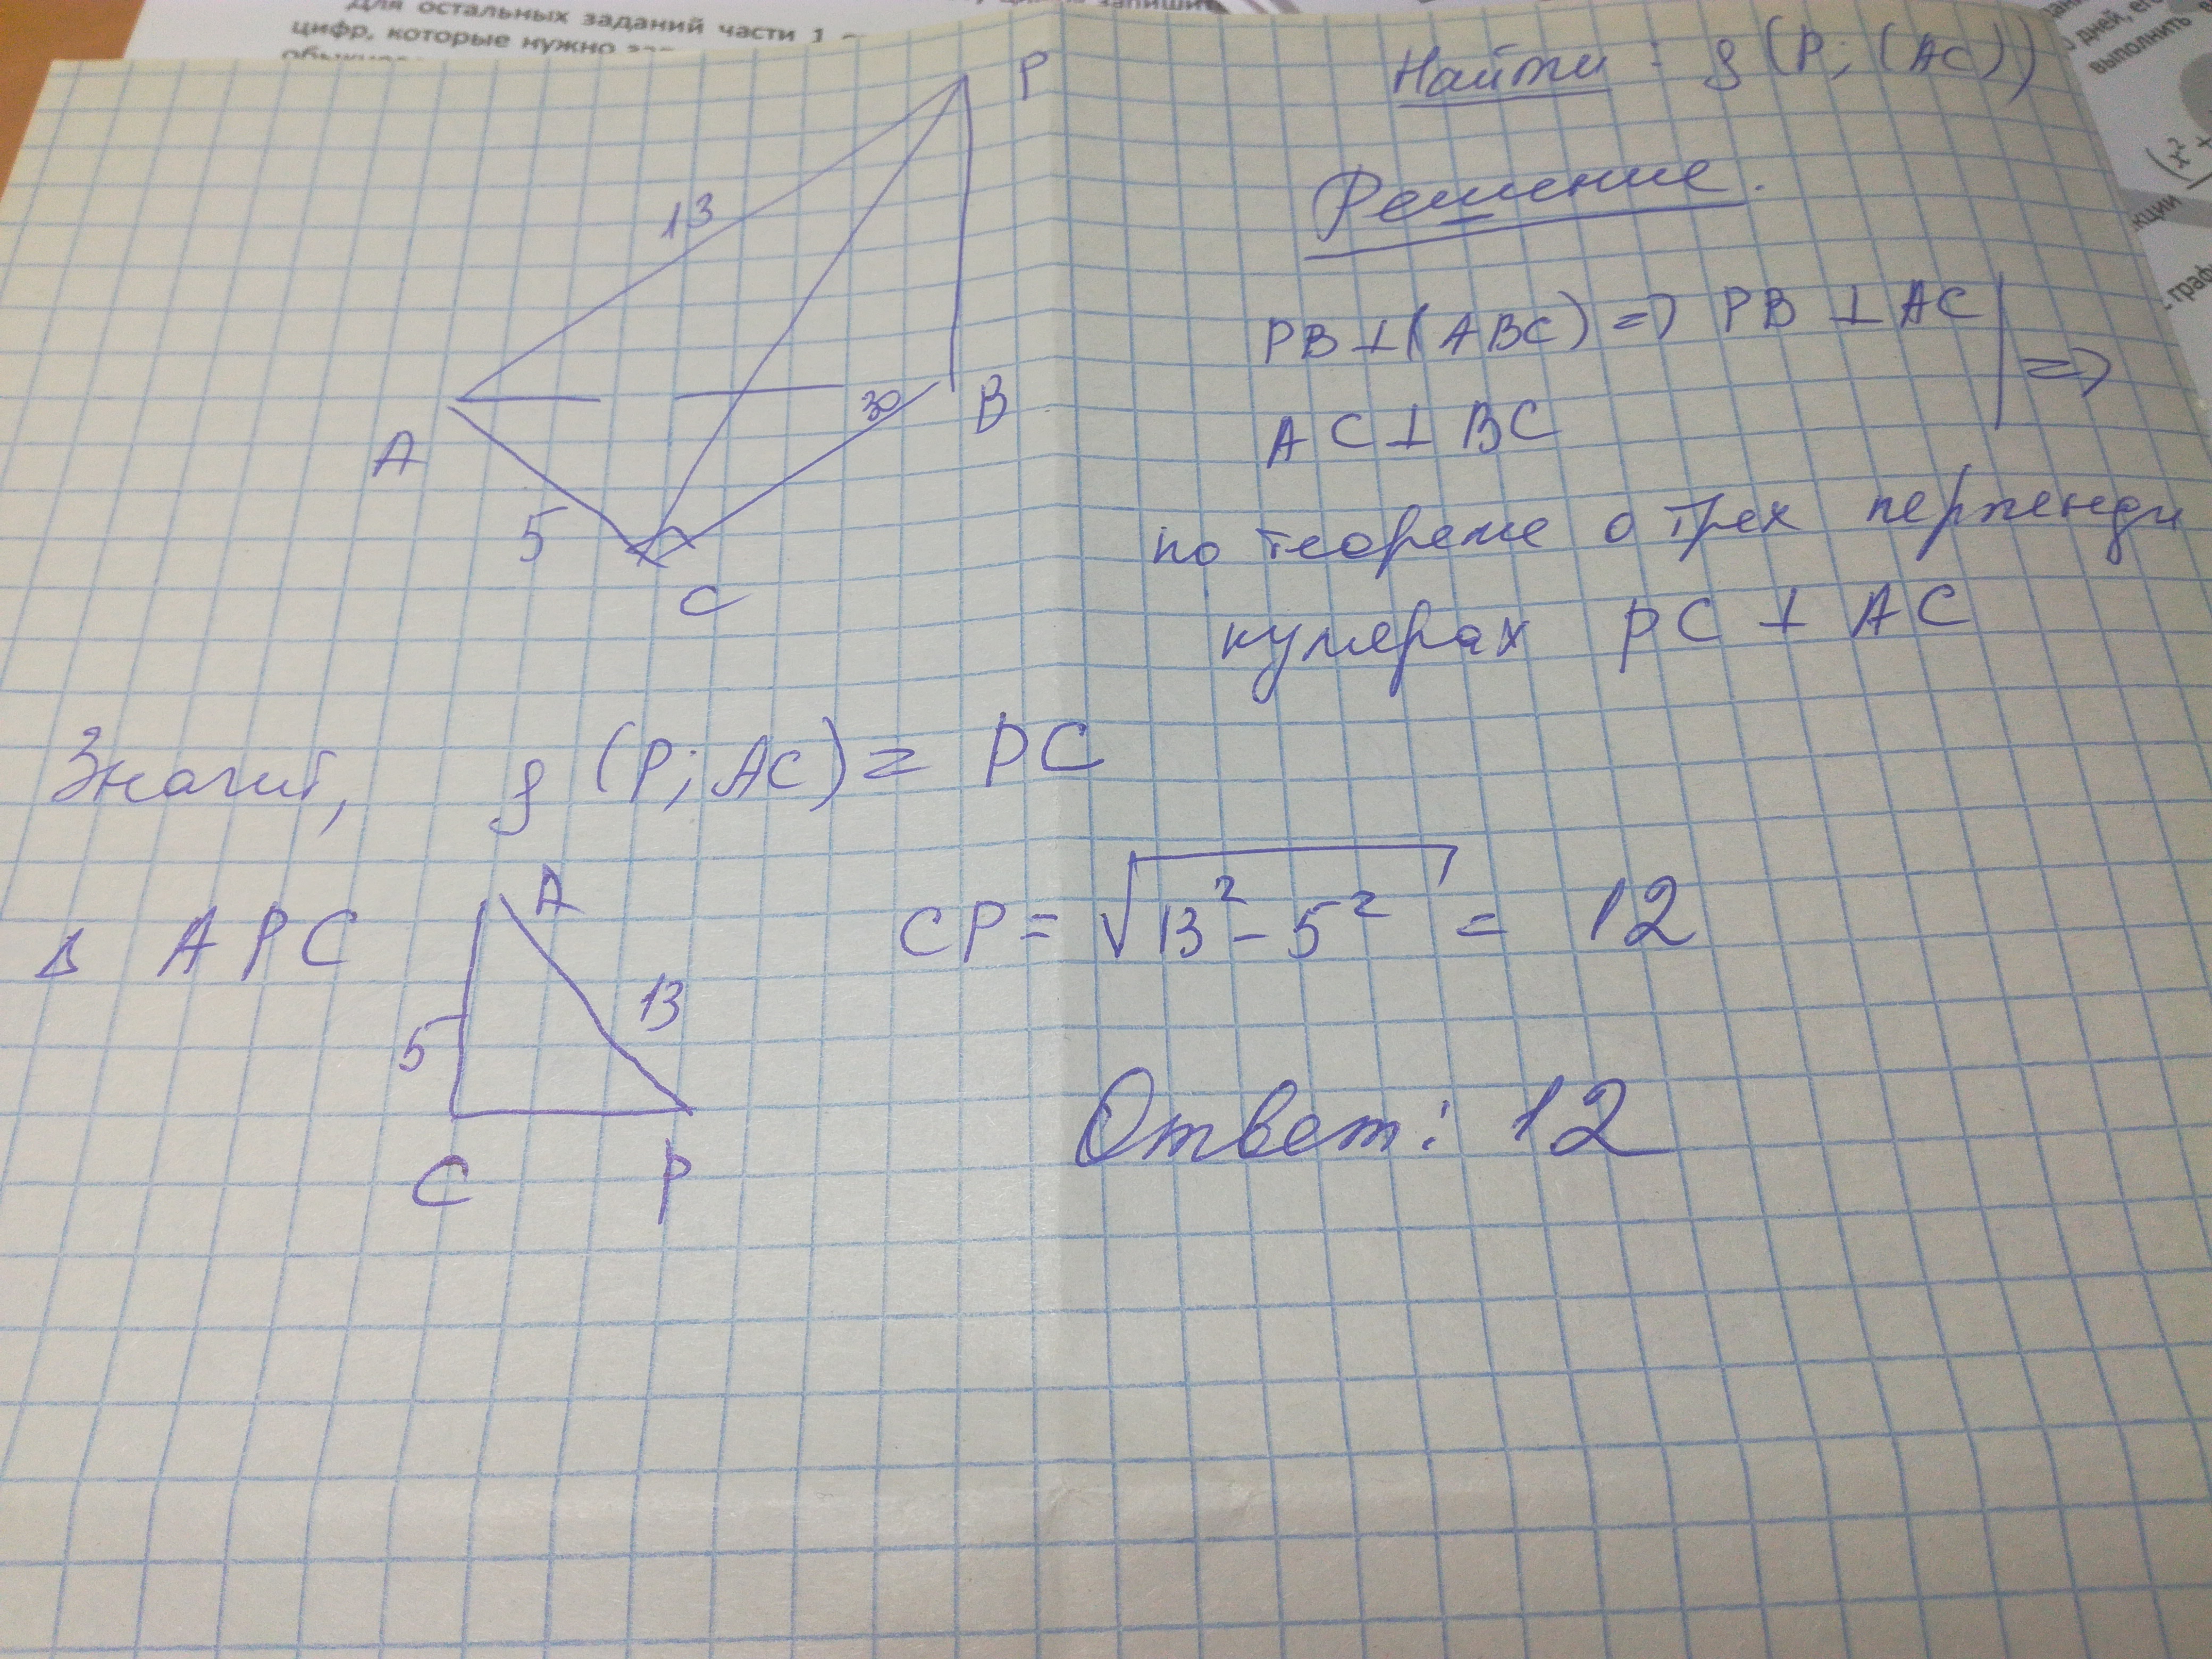 Для остальных заданий части 1
цифр, которые нужно
P
13
A
30
B
5
C
Найти: ρ(P; (AC))
Решение.
PB⊥(ABC) => PB ⊥ AC
=>
AC⊥BC
по теореме о трех перпенди
кулярах PC ⊥ AC
Значит, ρ(P; AC) = PC
Δ APC
A
5
13
C P
CP = √13² - 5² = 12
Ответ: 12
дней, его
выполнить в
(x² +
кции
-граф